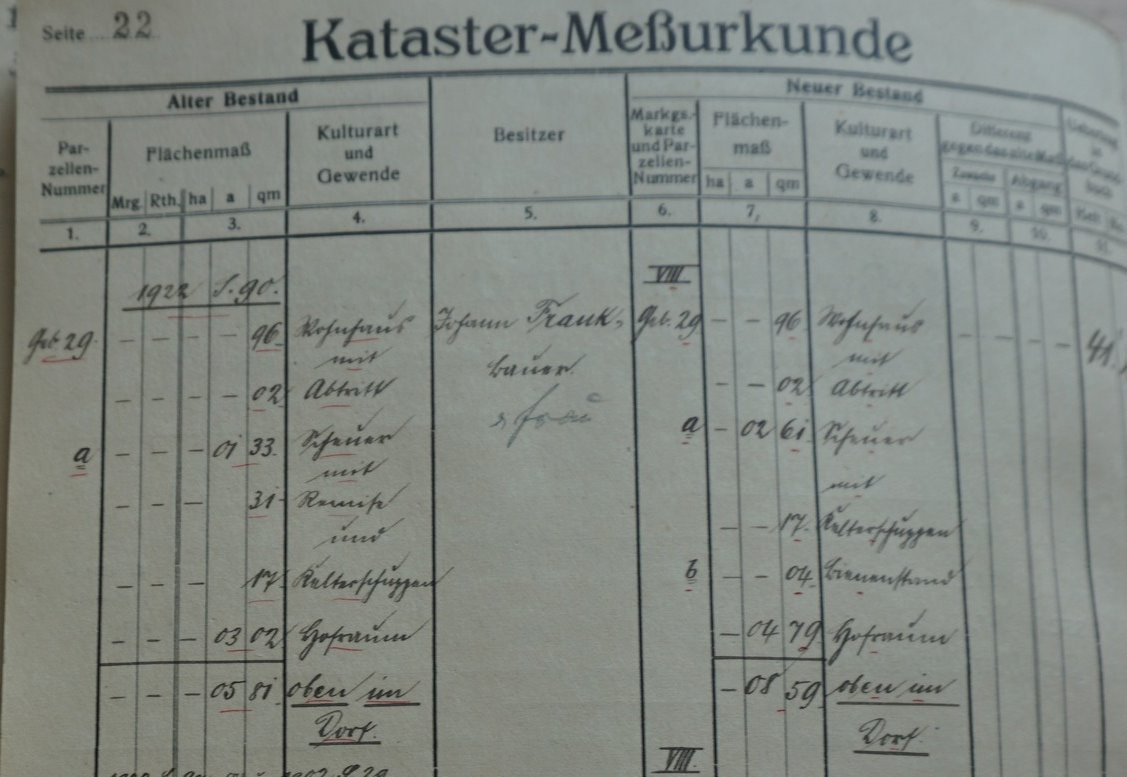 Seite 22
Kataster-Meßurkunde
Alter Bestand
Neuer Bestand
Par-
zellen-
Nummer
Flächenmaß
Mrg. Rth. ha a qm
Kulturart
und
Gewende
Besitzer
Markgs.-
karte
und Par-
zellen-
Nummer
Flächen-
maß
ha a qm
Kulturart
und
Gewende
Differenz
gegen das alte Maß
Zuwachs Abgang
a qm a qm
1. 2. 3. 4. 5. 6. 7. 8. 9. 10. 11.
1922 S. 90. VIII
Geb. 29 – – – – 96 Wohnhaus Johann Frank, Geb. 29 – – 96 Wohnhaus – – – – 41
mit Bauer mit
– – – – 02 Abtritt – – 02 Abtritt
& Frau
a – – – 01 33 Scheuer a – 02 61 Scheuer
mit mit
– – – 31 Remise
und – – 17 Kelterschuppen
– – – 17 Kelterschuppen b – – 04 Bienenstand
– – – 03 02 Hofraum – 04 79 Hofraum
– – – 05 81 oben im – 08 59 oben im
Dorf. Dorf.
VIII.